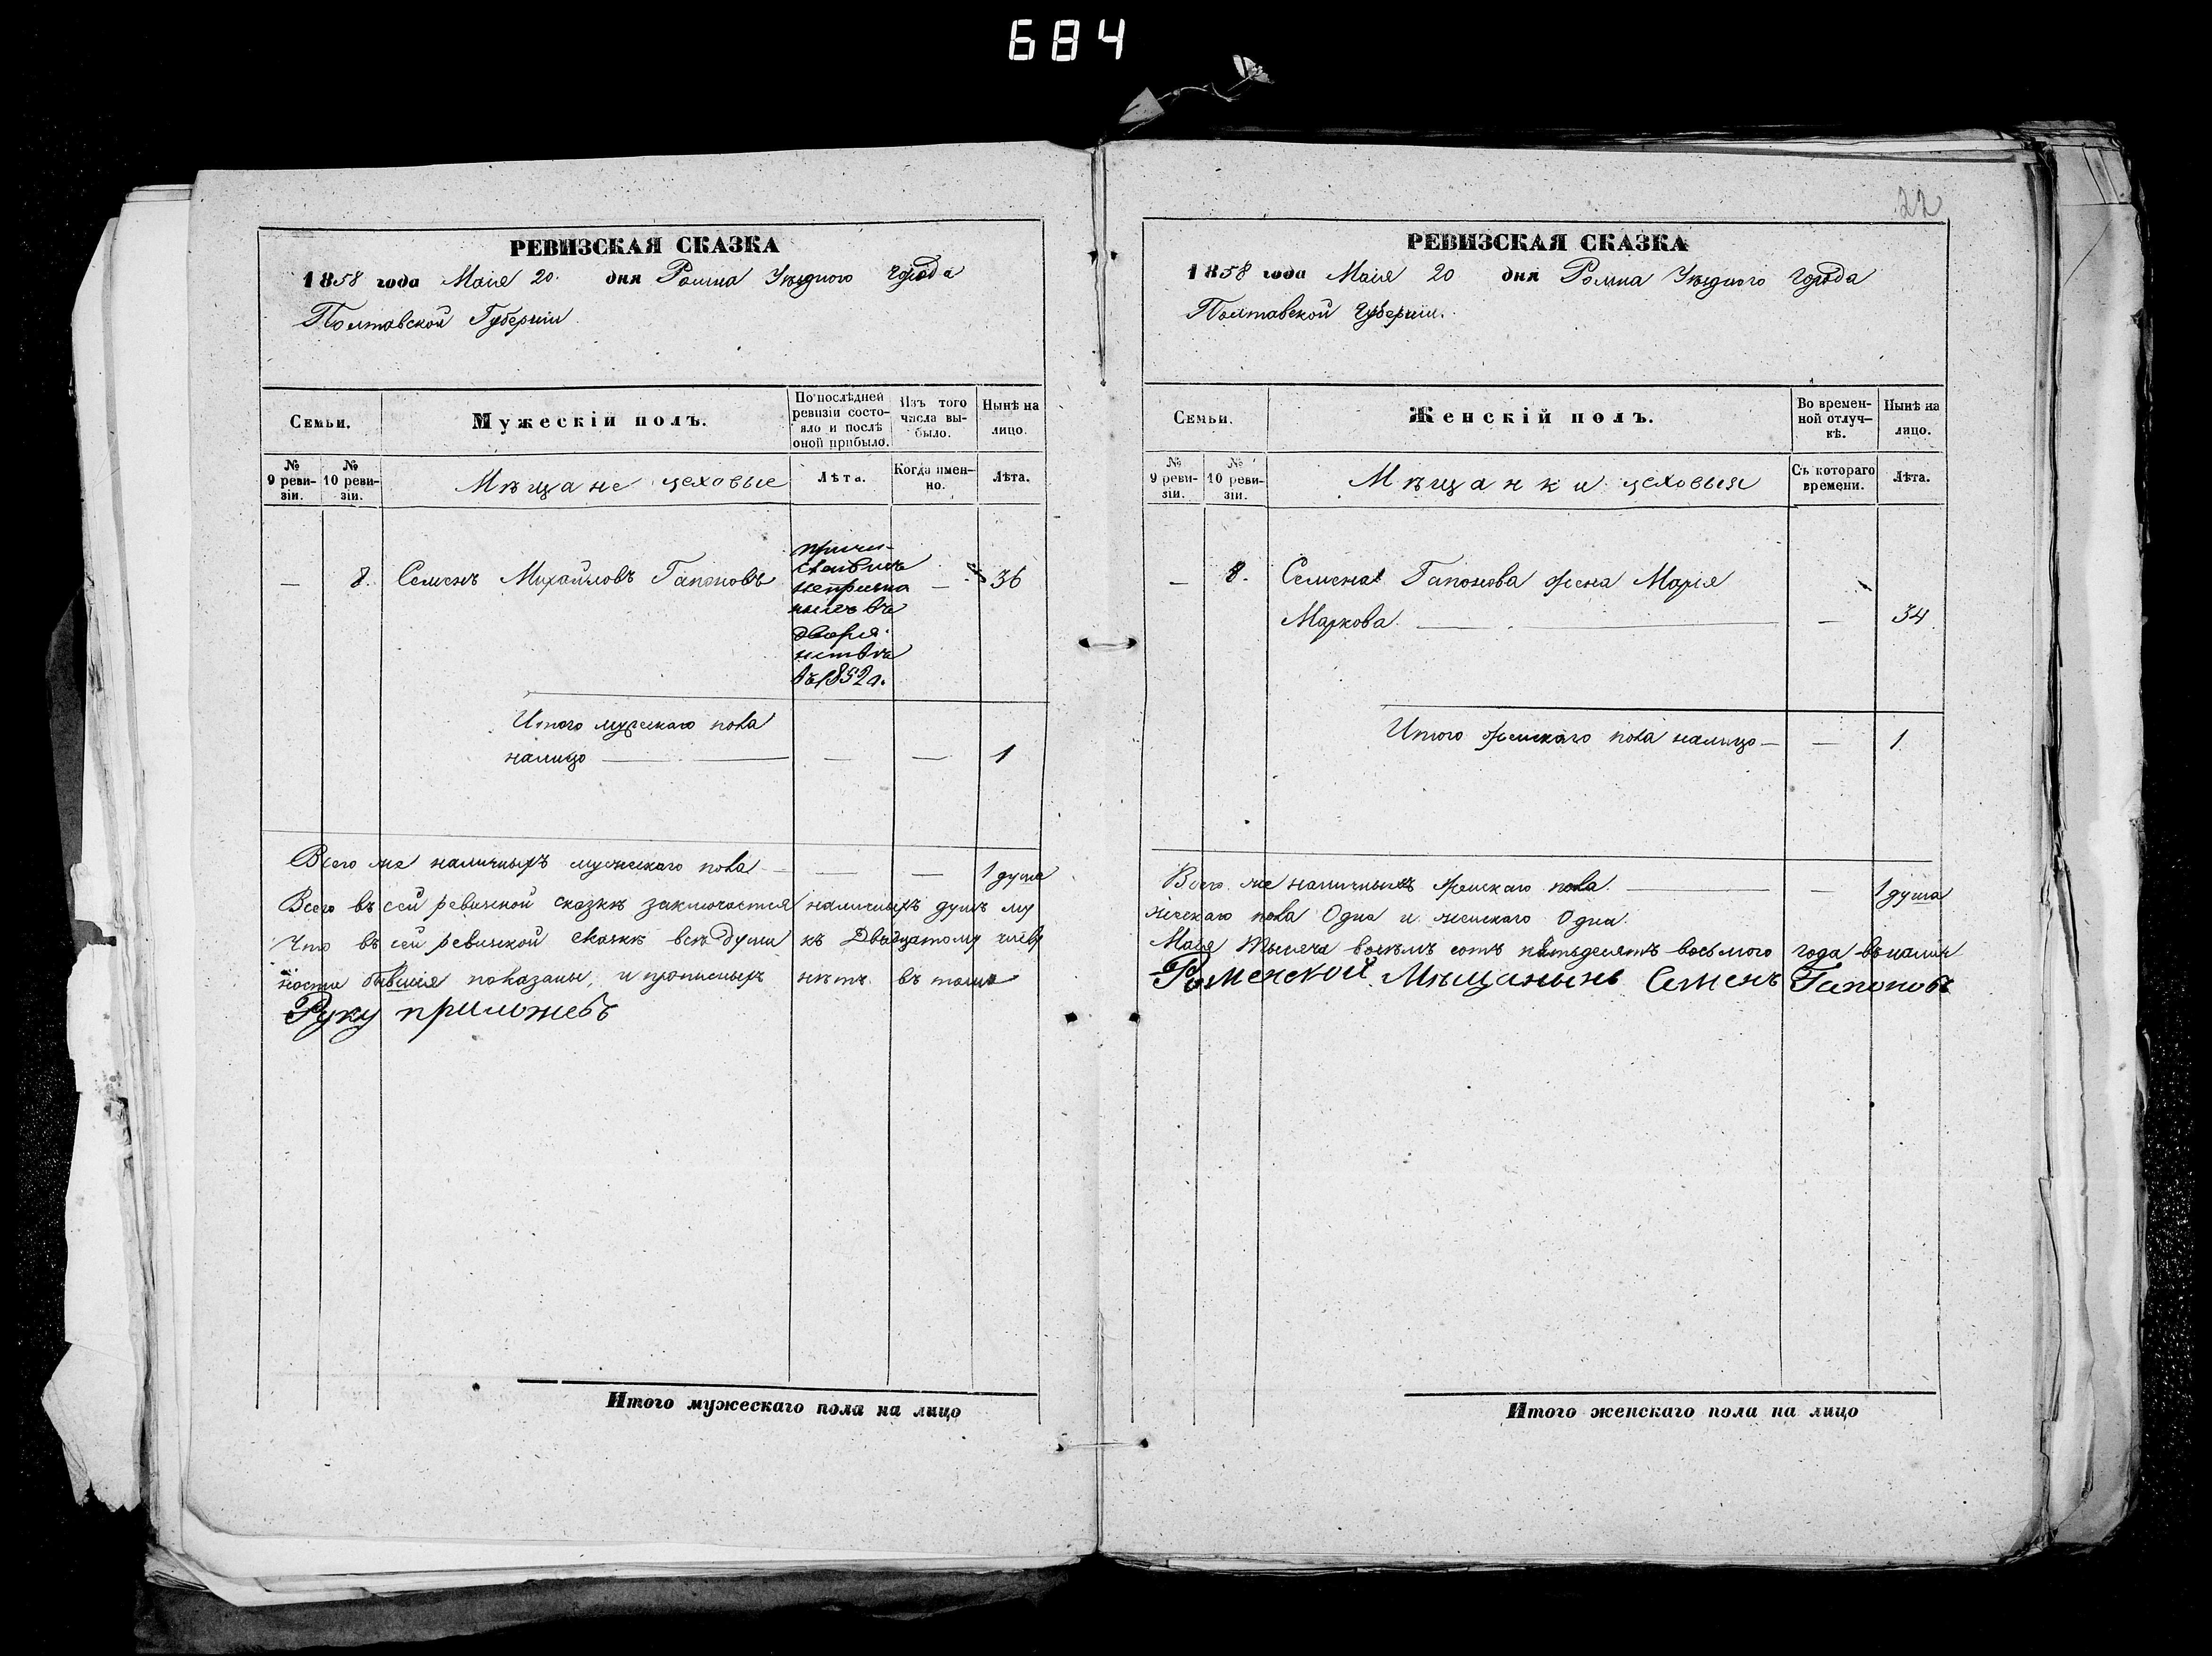 684
РЕВИЗСКАЯ СКАЗКА
1858 года Маія 20. дня Ромна Уѣзднаго города
Полтавской Губерніи
Семьи.
Мужескій полъ.
По послѣдней ревизіи состояло и послѣ оной прибыло.
Изъ того числа выбыло.
Нынѣ на лицо.
№ 9 ревизіи.
№ 10 ревизіи.
Мѣщане цеховые
Лѣта.
Когда именно.
Лѣта.
— 8. Семенъ Михайловъ Гапоновъ — 36
дворя-
въ 1852 г.
Итого мужескаго пола
налицо — — — 1
Всего же наличныхъ мужескаго пола — — — 1 душа
Всего въ сей ревизской сказкѣ заключается наличныхъ душъ му
Что въ сей ревизской сказкѣ всѣ души къ Двадцатому числу
ности бывшія показаны, и прописныхъ нѣтъ въ томъ
Руку приложевъ
Итого мужескаго пола на лицо
22
РЕВИЗСКАЯ СКАЗКА
1858 года Маія 20 дня Ромна Уѣзднаго города
Полтавской Губерніи.
Семьи.
Женскій полъ.
Во временной отлучкѣ.
Нынѣ на лицо.
№ 9 ревизіи.
№ 10 ревизіи.
Мѣщанки цеховыя
Съ котораго времени.
Лѣта.
— 8. Семена Гапонова жена Марія
Маркова — — 34
Итого женскаго пола налицо — — 1
Всего же наличныхъ женскаго пола — — 1 душа
жескаго пола Одна и женскаго Одна.
Маія тысяча восемъ сотъ пятьдесятъ восьмого года въ налич
Роменской Мѣщанинъ Семенъ Гапоновъ
Итого женскаго пола на лицо